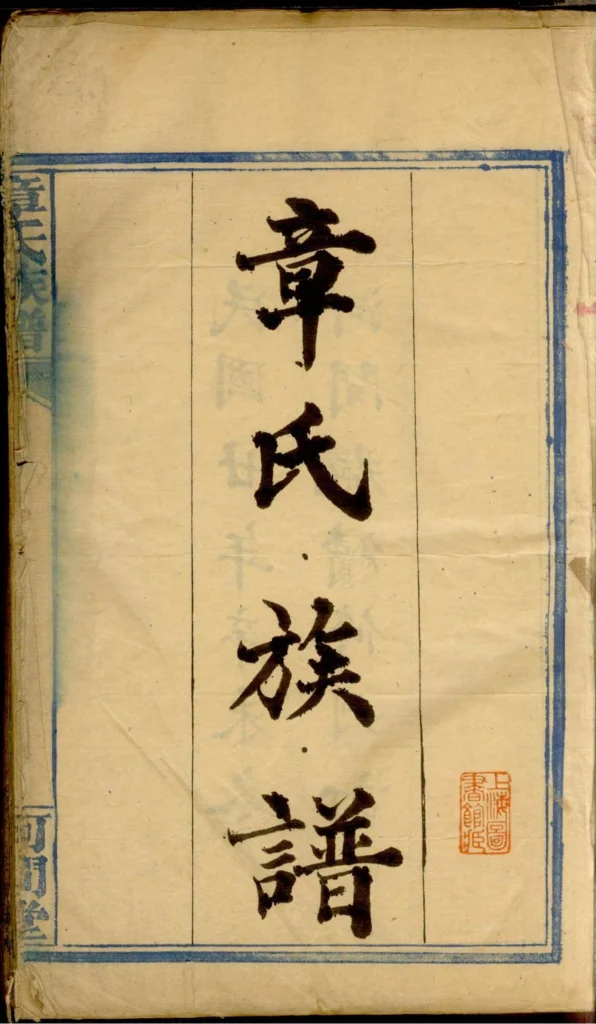 章氏族譜
上海圖
書館藏
章氏族譜
河間堂